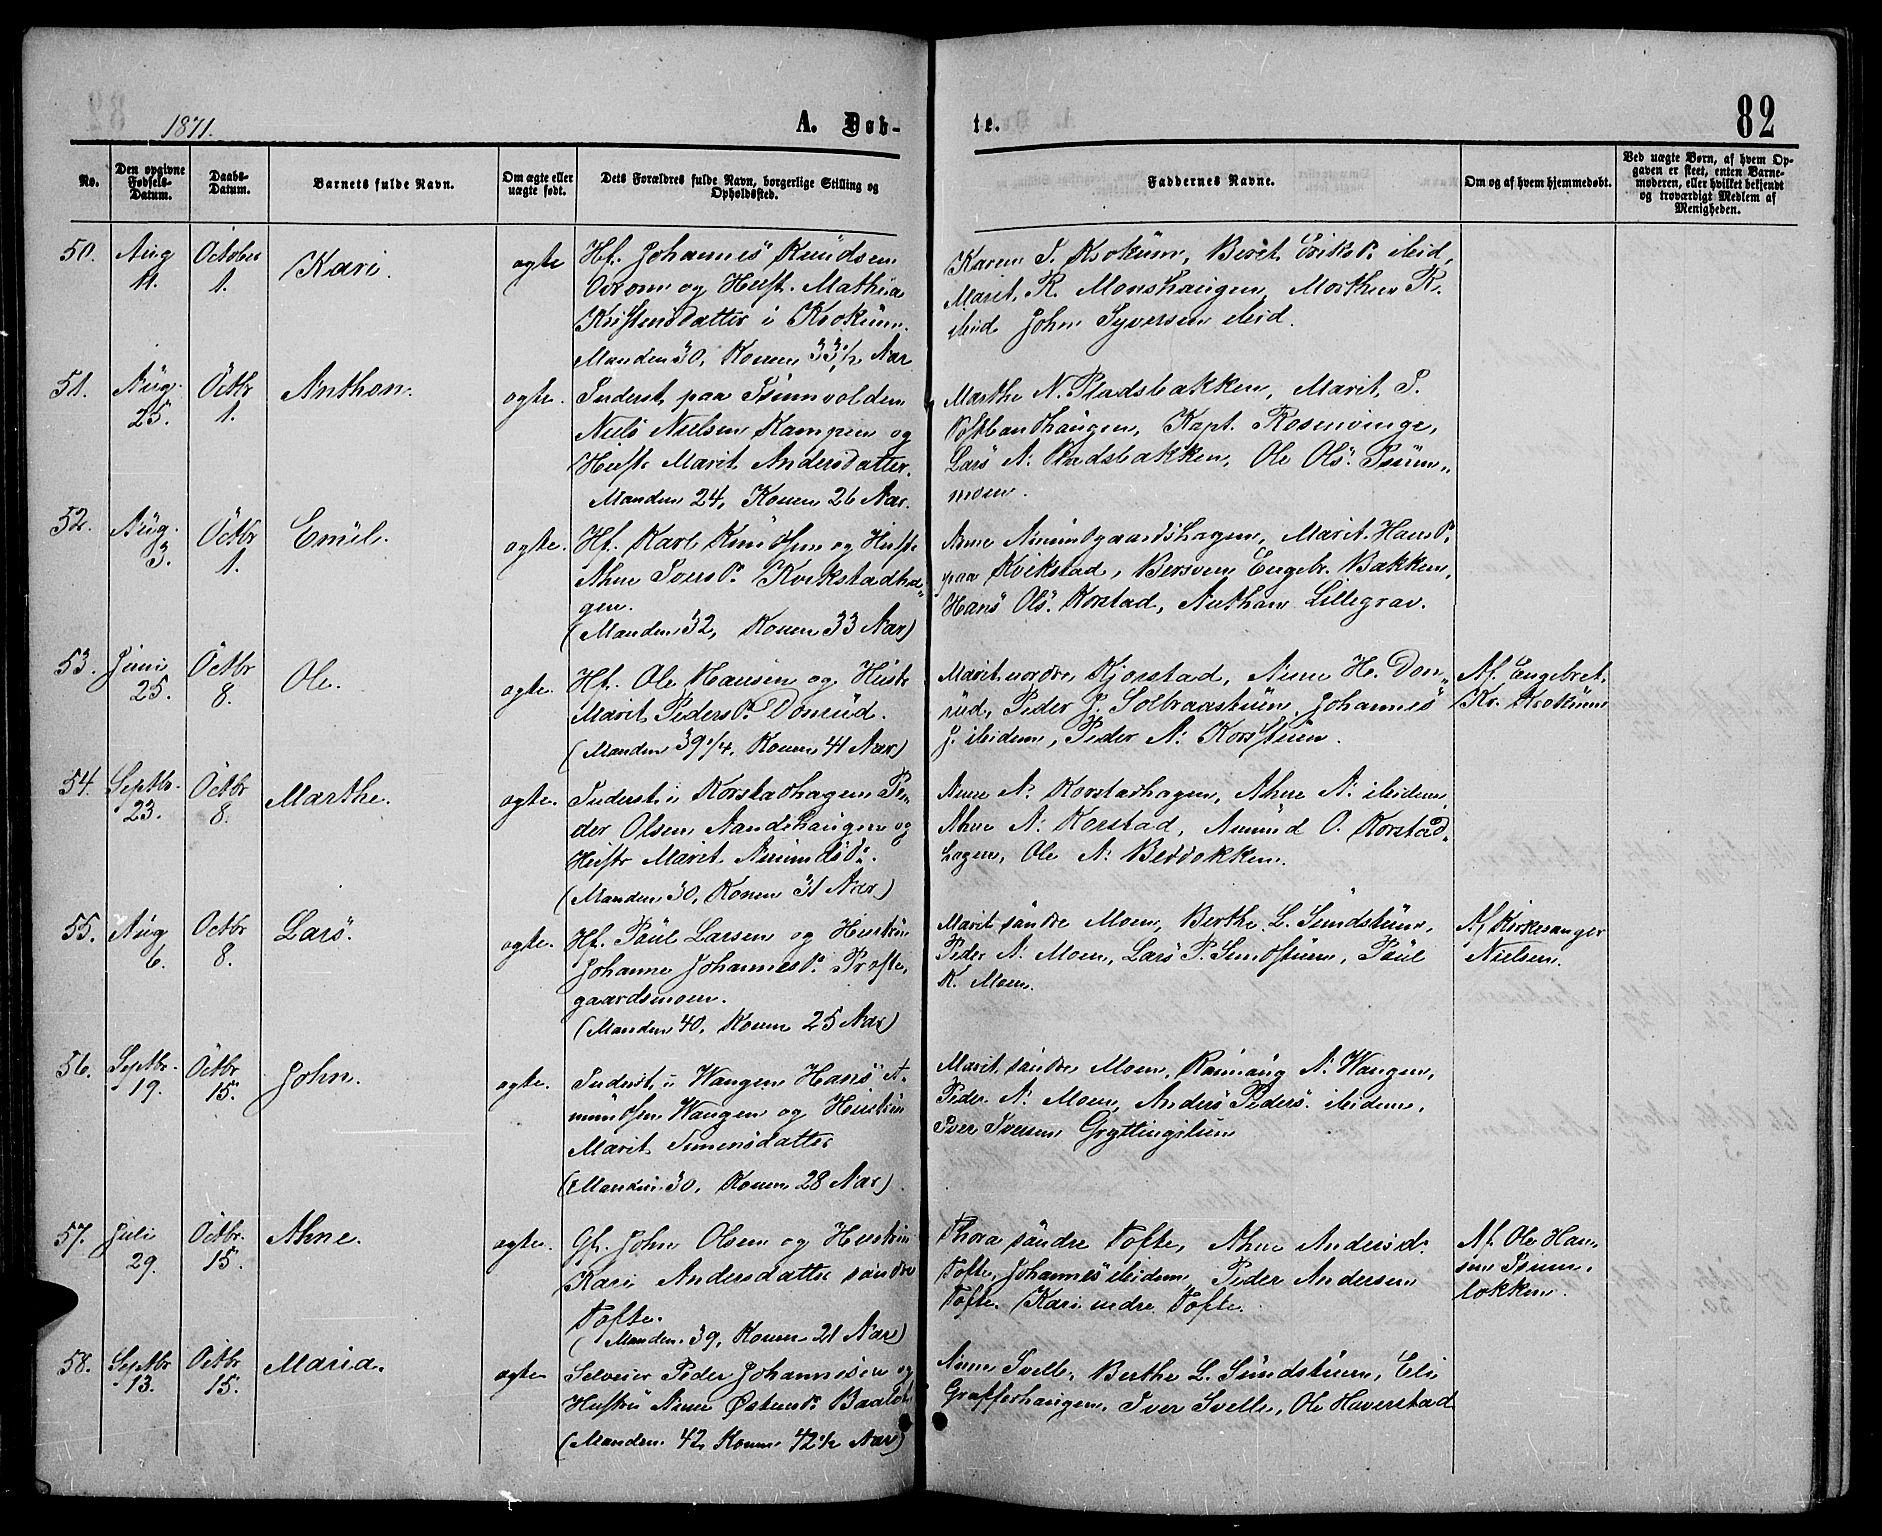 1871.
A. Døb-
te.
82
No.
Den opgivne Fødsels-Datum.
Daabs-Datum.
Barnets fulde Navn.
Om ægte eller uægte født.
Dets Forældres fulde Navn, borgerlige Stilling og Opholdssted.
Faddernes Navne.
Om og af hvem hjemmedøbt.
Ved uægte Børn, af hvem Op-
gaven er skeet, enten Barne-
moderen, eller hvilket bekjendt
og troværdigt Medlem af
Menigheden.
50. Aug 11. October 1. Kari. ægte
Hf. Johannes Knudsen
og Hust. Mathia
Kristensdatter i Krokum.
Manden 30, Konen 33½ Aar
Karen T. Krokum, Berit Eriksd. ibid,
Marit R. Monshaugen, Morthen R.
ibid John Syversen ibid.
51. Aug. 25. Octbr 1. Anthon. ægte.
Inderst paa Tsumvolden
Niels Nielsen Kampen og
Hustr Marit Andersdatter.
Manden 24, Konen 26 Aar.
Marthe N. Pladsbakken, Marit S.
Kapt. Rosenvinge,
Lars A. Pladsbakken, Ole Ols. Tsum-
moen.
52. Aug. 3. Octbr 1. Emil. ægte.
Hf. Karl Knudsen og Hustr
Ahne Iversd. Kvikstadha-
gen.
(Manden 32, Konen 33 Aar)
Anne Amundgaardshagen, Marit Hansd.
paa Kvikstad, Bersven Engebr. Bakken,
Hans Ols. Korstad, Anthon Lillegrav.
53. Juni 25. Octbr 8. Ole. ægte.
Hf. Ole Hansen og Hustr
Marit Pedersd. Donrud.
(Manden 39¼, Konen 41 Aar)
Marit nordre Kjorstad, Anne H. Don-
rud, Peder J. Solbraastuen, Johannes
J. ibidem, Peder A. Korsstuen.
Af Engebret
Kr. Krokum
54. Septbr. 23. Octbr 8. Marthe. ægte.
Inderst i Korstadhagen Pe-
der Olsen Aandshaugen og
Hustr Marit Amundsd.
(Manden 30, Konen 31 Aar)
Anne A. Korstadhagen, Ahne A. ibidem,
Ahne A. Korstad, Amund O. Korstad-
hagen, Ole A.
55. Aug 6. Octbr 8. Lars. ægte.
Hf. Paul Larsen og Hustru
Johanne Johannesd. Præste-
gaardsmoen.
(Manden 40, Konen 25 Aar)
Marit søndre Moen, Berthe L. Sundstuen,
Peder A. Moen, Lars P. Sundstuen, Paul
K. Moen.
Af Kirkesanger
Nielsen.
56. Septbr. 19. Octbr. 15. John. ægte.
Inderst i Wangen Hans A-
mundsen Wangen og Hustru
Marit Simensdatter
(Manden 30, Konen 28 Aar)
Marit søndre Moen, Rannaug A. Wangen,
Peder A. Moen, Anders Peders. ibidem,
Iver Iversen Gryttingstuen
57. Juli 29. Octbr. 15. Ahne. ægte.
Gf. John Olsen og Hustru
Kari Andersdatter søndre
Tofte.
(Manden 39, Konen 21 Aar)
Thora søndre Tofte, Ahne Andersd.
Tofte, Johannes ibidem, Peder Andersen
Tofte. Kari nedre Tofte.
Af Ole Han-
sen Tsum-
løkken.
58. Septbr 13. Octbr. 15. Maria. ægte
Selveier Peder Johannesen og
Hustru Anne Østensd.
(Manden 42, Konen 42½ Aar)
Anne Svelle, Berthe L. Sundstuen, Eli
Grafferhaugen, Iver Svelle, Ole Haverstad